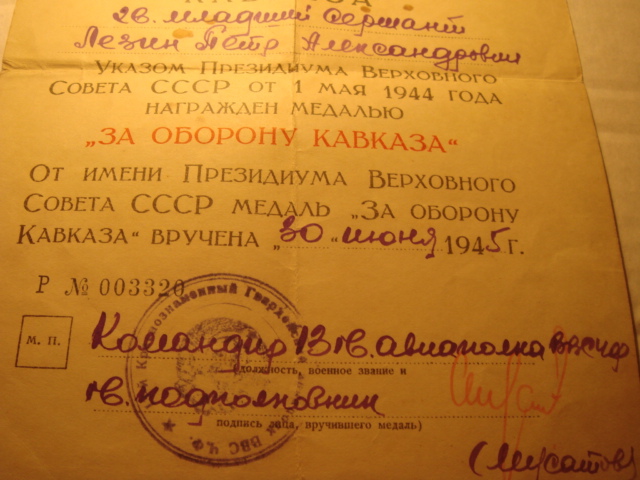 гв. младший сержант
Лезин Петр Александрович
Указом Президиума Верховного
Совета СССР от 1 мая 1944 года
награжден медалью
„ЗА ОБОРОНУ КАВКАЗА“
От имени Президиума Верховного
Совета СССР медаль „За оборону
Кавказа“ вручена „30“ июня 1945 г.
Р № 003320
М. П.
Командир 13 гв. авиаполка ВВС ЧФ
(должность, военное звание и
гв. подполковник
подпись лица, вручившего медаль)
(Мусатов)
Краснознаменный Гвардейский
ВВС Ч.Ф.